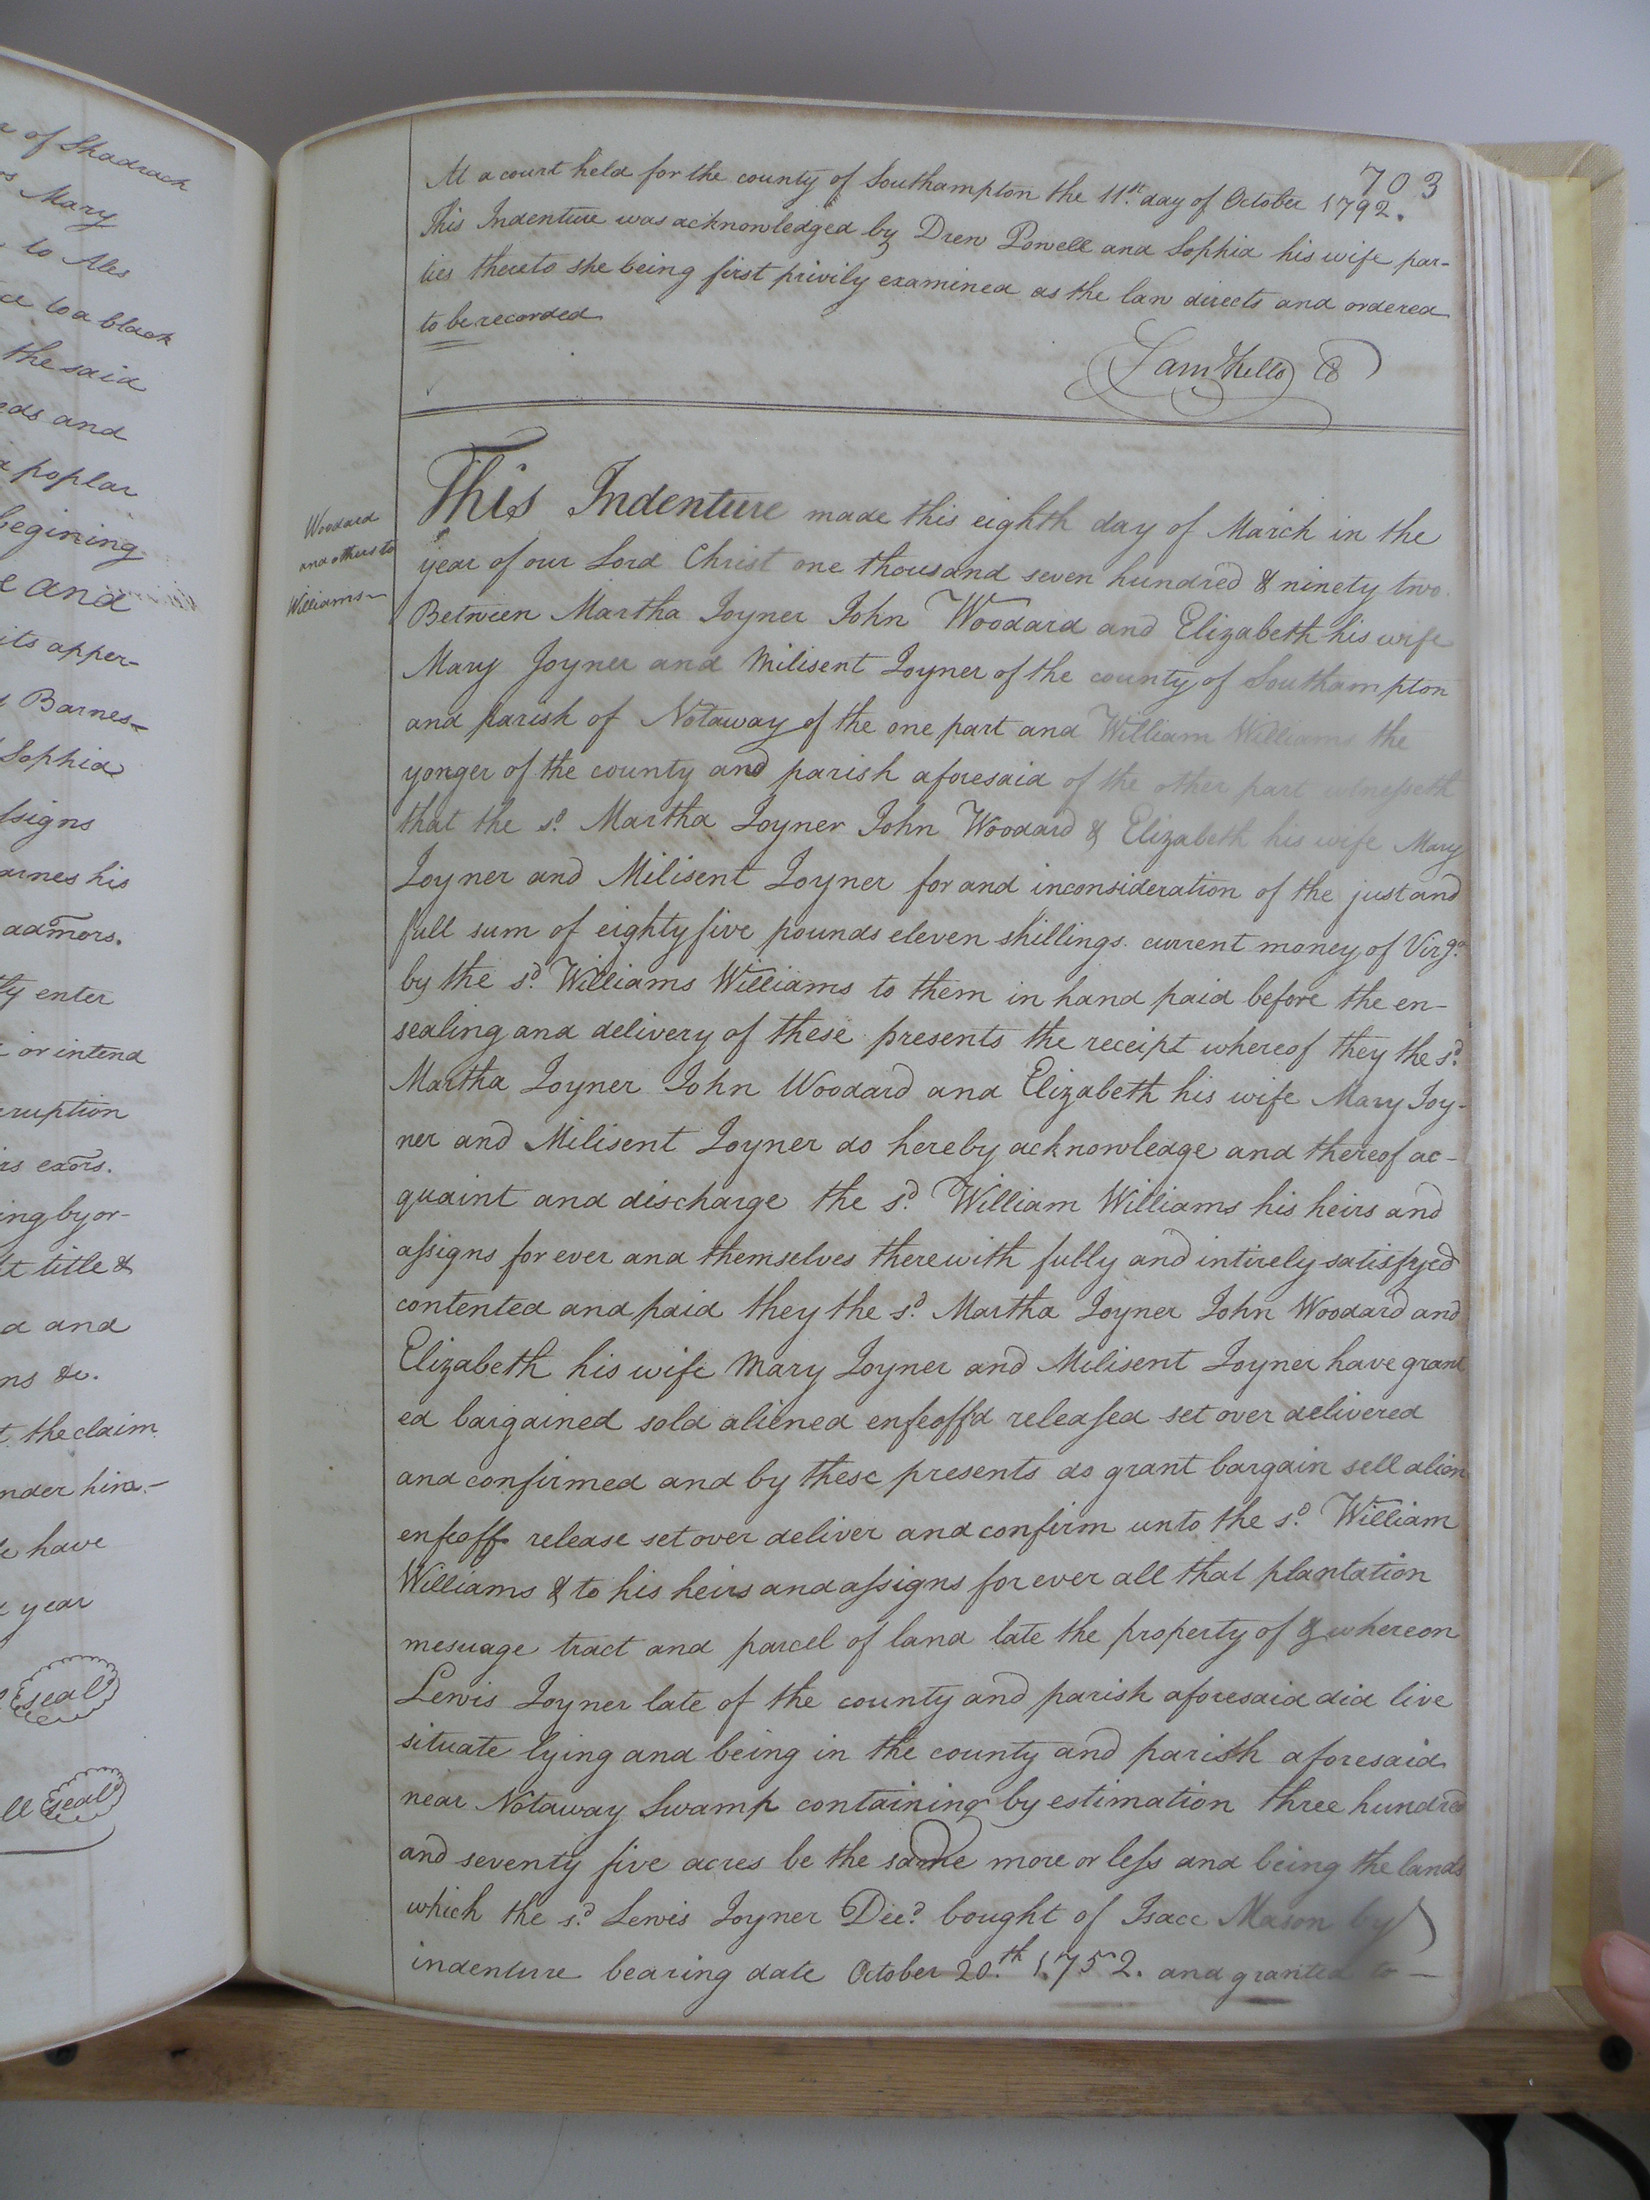 r of Shadrach
Mary
to Ales
to a black
the said
ds and
poplar
begining
e and
its apper-
Barnes
Sophia
ssigns
arnes his
admors.
ty enter
or intend
ruption
is exors.
ing by or-
t title &
d and
ns &c.
the claim
nder him.-
have
year
seal
ll seal
703
At a court held for the county of Southampton the 11th. day of October 1792.
This Indenture was acknowledged by Drew Powell and Sophia his wife par-
ties thereto she being first privily examined as the law directs and ordered
to be recorded
Sam Kello
Woodard
and others to
Williams
This Indenture made this eighth day of March in the
year of our Lord Christ one thousand seven hundred & ninety two.
Between Martha Joyner John Woodard and Elizabeth his wife
Mary Joyner and Milisent Joyner of the county of Southampton
and parish of Notaway of the one part and William Williams the
yonger of the county and parish aforesaid of the other part witnesseth
that the sd. Martha Joyner John Woodard & Elizabeth his wife Mary
Joyner and Milisent Joyner for and inconsideration of the just and
full sum of eighty five pounds eleven shillings current money of Virga.
by the sd. Williams Williams to them in hand paid before the en-
sealing and delivery of these presents the receipt whereof they the sd.
Martha Joyner John Woodard and Elizabeth his wife Mary Joy-
ner and Milisent Joyner do hereby acknowledge and thereof ac-
quaint and discharge the sd. William Williams his heirs and
assigns for ever and themselves therewith fully and intirely satisfyed
contented and paid they the sd. Martha Joyner John Woodard and
Elizabeth his wife Mary Joyner and Milisent Joyner have grant
ed bargained sold aliened enfeoff'd released set over delivered
and confirmed and by these presents do grant bargain sell alien
enfeoff release set over deliver and confirm unto the sd. William
Williams & to his heirs and assigns for ever all that plantation
mesuage tract and parcel of land late the property of & whereon
Lewis Joyner late of the county and parish aforesaid did live
situate lying and being in the county and parish aforesaid
near Notaway Swamp containing by estimation three hundred
and seventy five acres be the same more or less and being the lands
which the sd. Lewis Joyner Decd. bought of Isacc Mason by
indenture bearing date October 20.th 1752. and granted to —